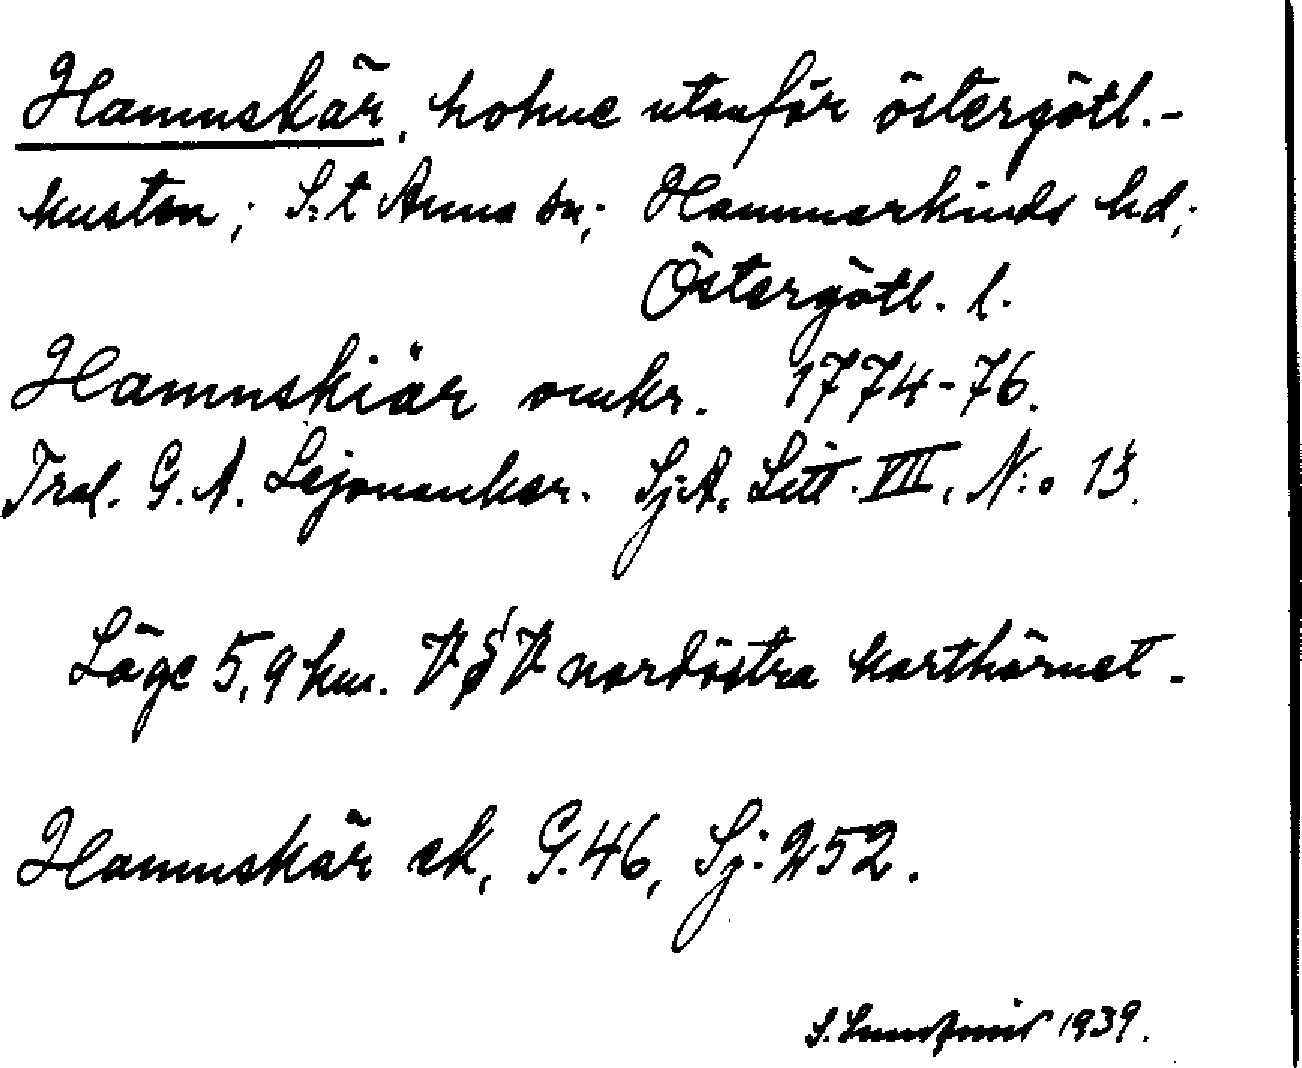 Hamnskär, holme utanför östergötl.-
kusten; S:t Anna sn; Hammarkinds hd;
Östergötl. l.
Hamnskiär omkr. 1774-76.
Trol. G. A. Lejonanker. Sj:A. Litt. VII, N:o 13.
Läge 5,9 km. VSV nordöstra karthörnet.
Hamnskär ek, G. 46, Sj: 252.
S. 1939.